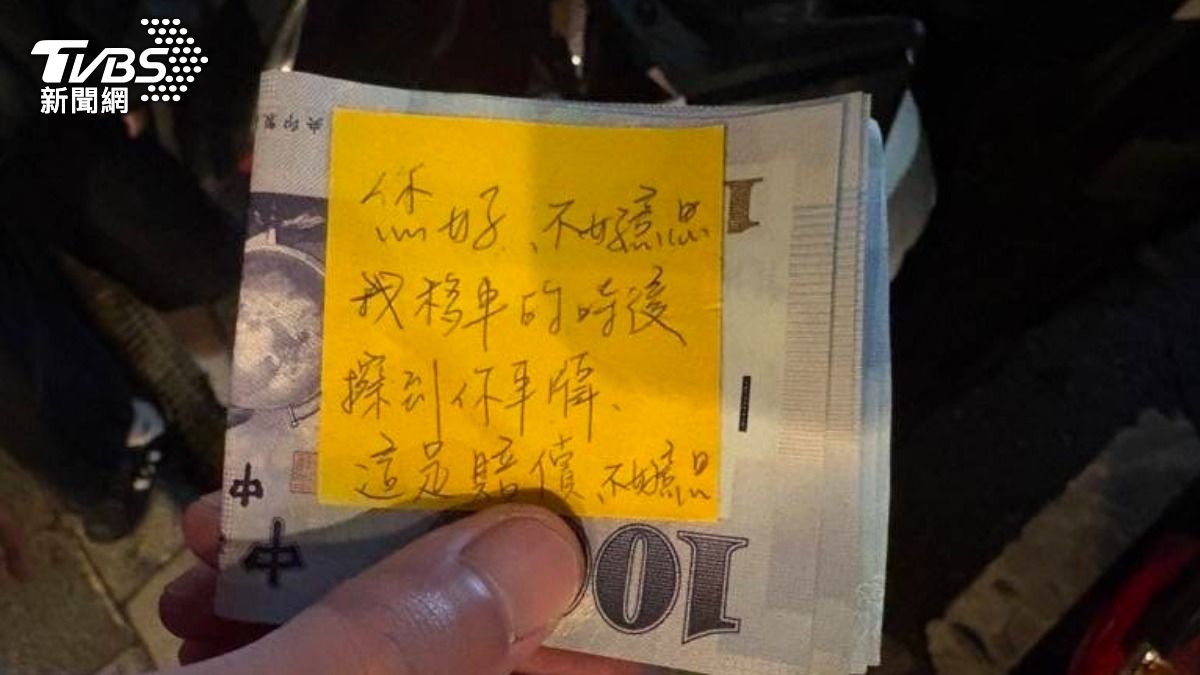 TVBS
新聞網
央印製
您好、不好意思
我移車的時後
擦到你車牌、
這是賠償、不好意思
中
中
100